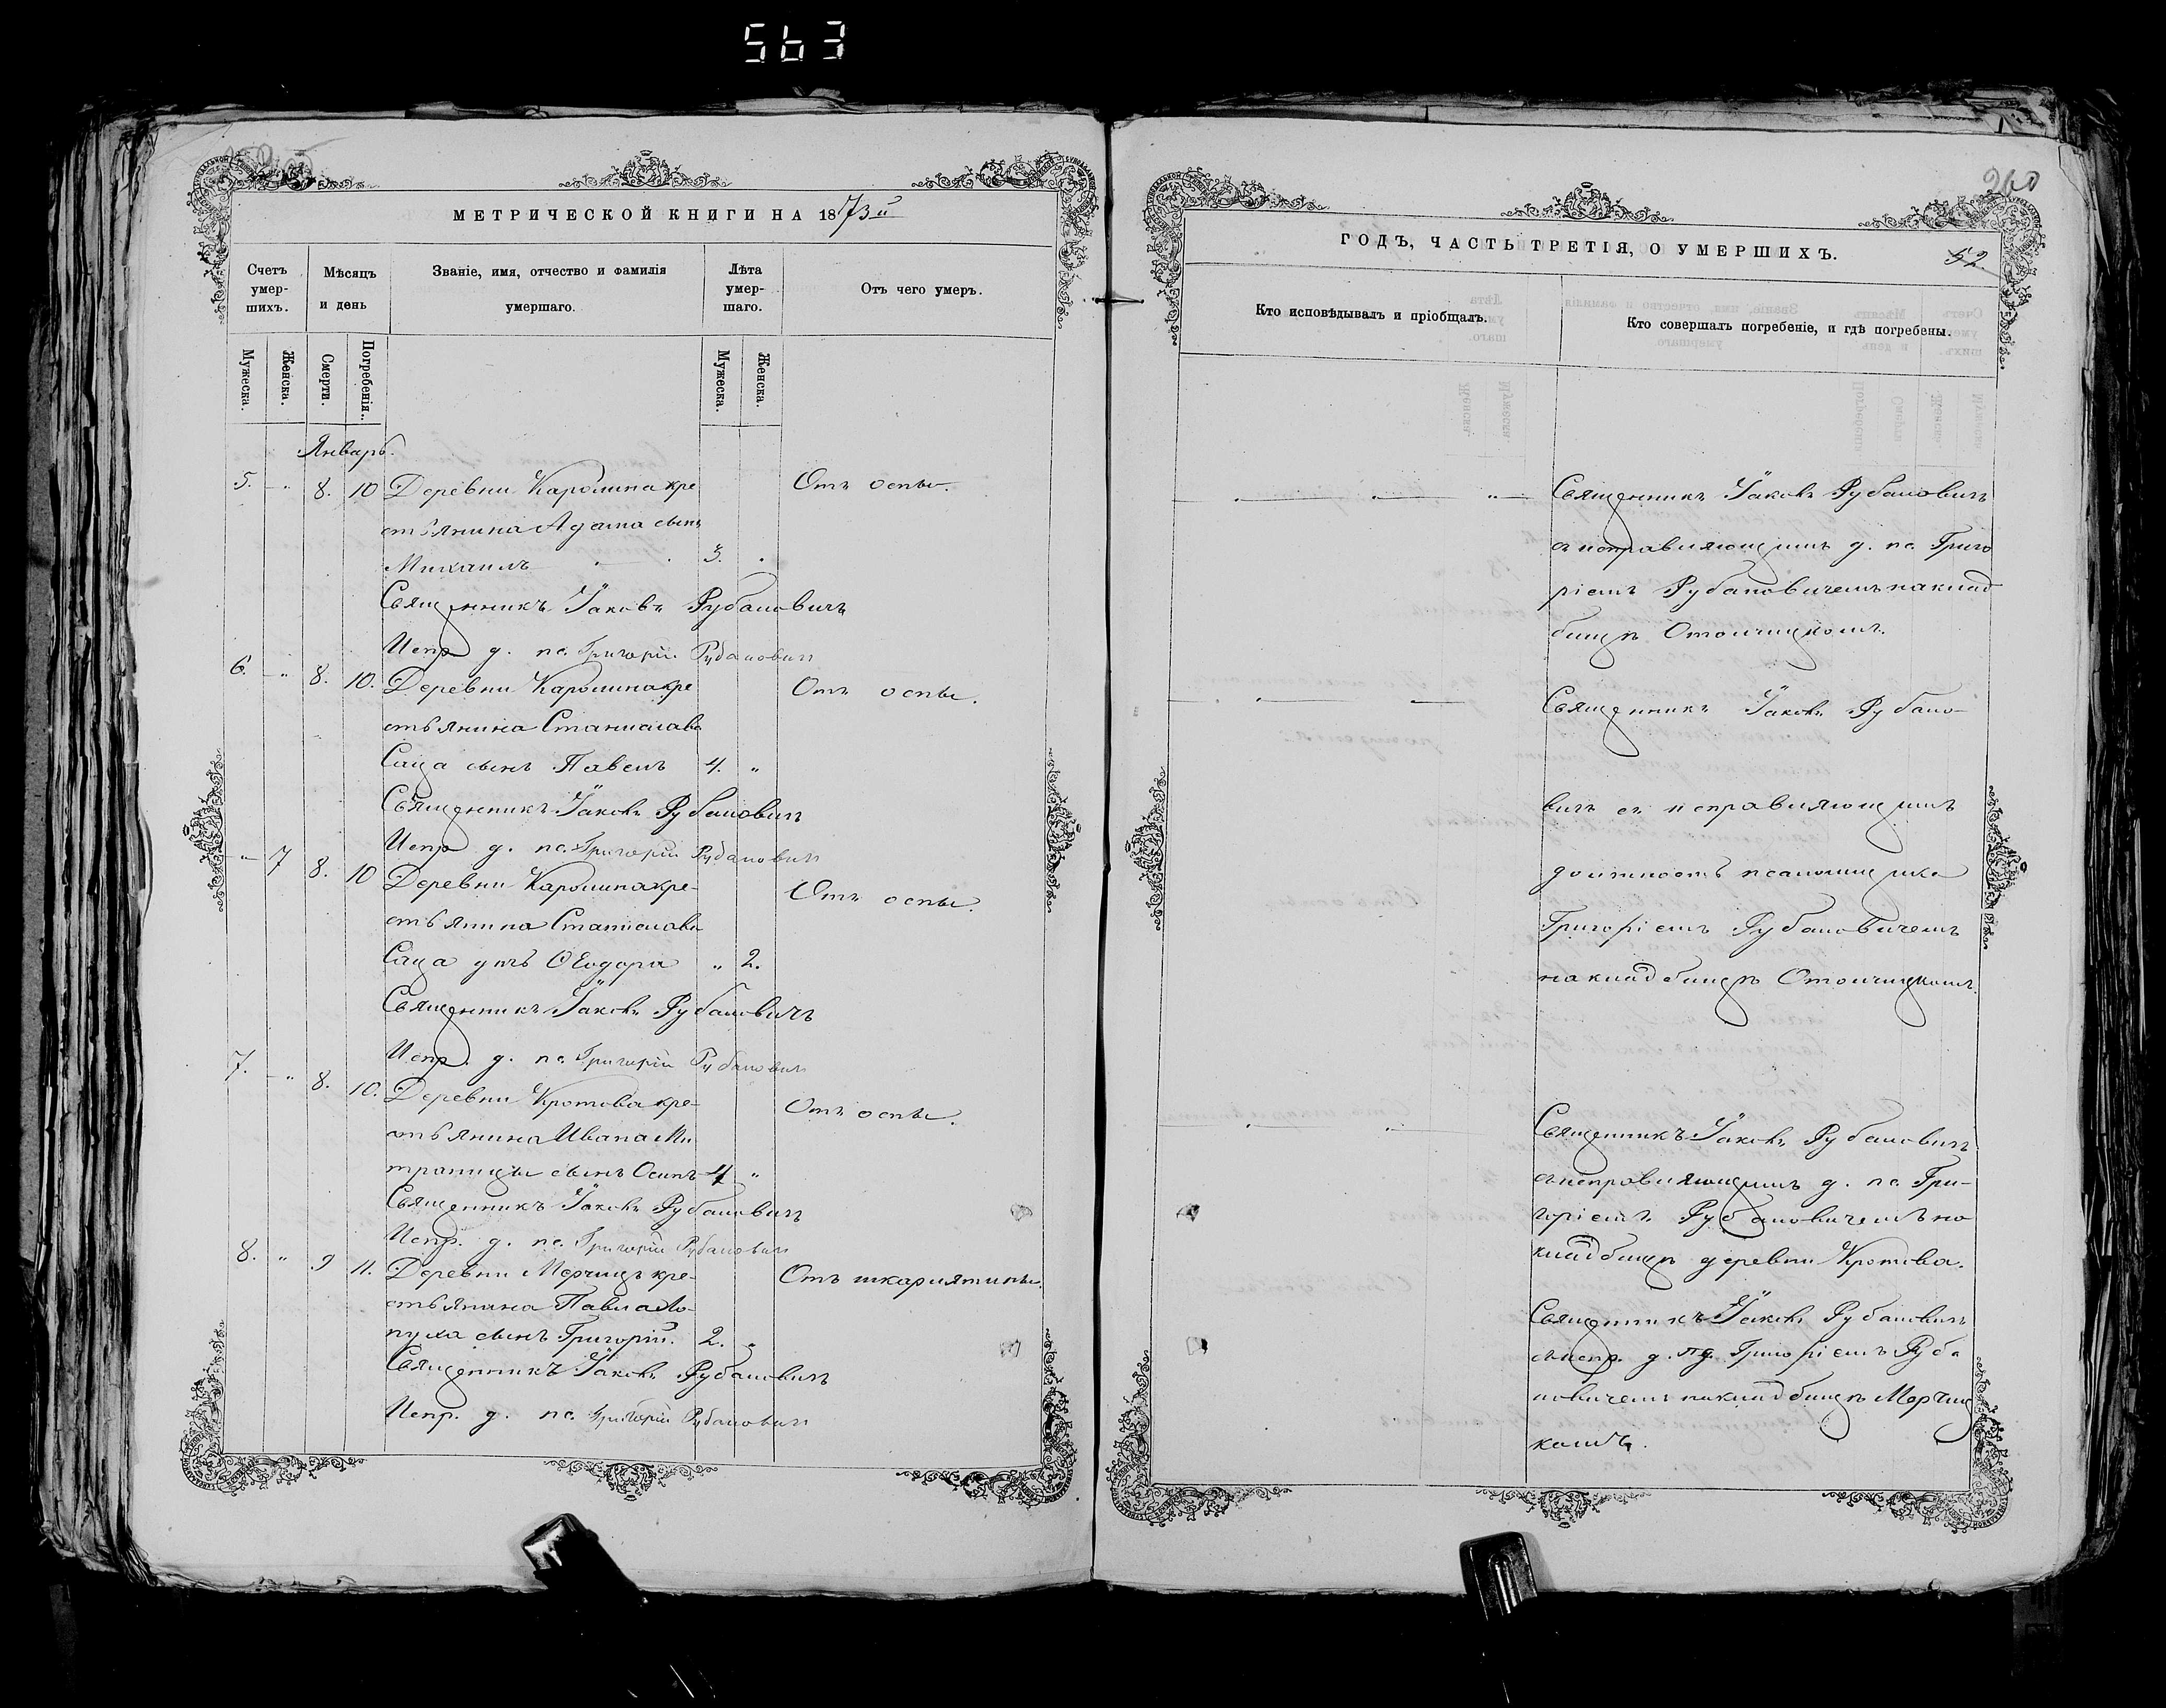 563
МЕТРИЧЕСКОЙ КНИГИ НА 1873й
Счетъ умер-шихъ.
Мѣсяцъ и день
Званіе, имя, отчество и фамилія умершаго.
Лѣта умер-шаго.
Отъ чего умеръ.
Мужеска.
Женска.
Смерти.
Погребенія.
Мужеска.
Женска.
Январь.
5. " 8. 10 Деревни Каролина кре Отъ оспы.
стьянина Адама сынъ
Михаилъ 3.
Священникъ Іаковъ Рубановичъ
Испр. д. пс. Григорій Рубановичъ
6. " 8. 10. Деревни Каролина кре Отъ оспы.
стьянина Станислава
Саца сынъ Павелъ 4. "
Священникъ Іаковъ Рубановичъ
Испр. д. пс. Григорій Рубановичъ
" 7 8. 10 Деревни Каролина кре- Отъ оспы.
стьянина Станислава
Саца дчь Ѳеодора " 2.
Священникъ Іаковъ Рубановичъ
Испр. д. пс. Григорій Рубановичъ
7. " 8. 10. Деревни Кротова кре- Отъ оспы.
стьянина Ивана Ми
траницы сынъ Осипъ 4 "
Священникъ Іаковъ Рубановичъ
Испр. д. пс. Григорій Рубановичъ
8. " 9 11. Деревни Мерчицъ кре- Отъ шкарлятины.
стьянина Павла Ло-
пуха сынъ Григорій. 2. "
Священникъ Іаковъ Рубановичъ
Испр. д. пс. Григорій Рубановичъ
260
ГОДЪ, ЧАСТЬ ТРЕТІЯ, О УМЕРШИХЪ.
52.
Кто исповѣдывалъ и пріобщалъ.
Кто совершалъ погребеніе, и гдѣ погребены.
Священникъ Іаковъ Рубановичъ
съ исправляющимъ д. пс. Григо
ріемъ Рубановичемъ на клад
бищѣ Отолчицкомъ.
Священникъ Іаковъ Рубано-
вичъ съ исправляющимъ
должность псаломщика
Григоріемъ Рубановичемъ
на кладбищѣ Отолчицкомъ.
Священникъ Іаковъ Рубановичъ
съ исправляющимъ д. пс. Гри-
горіемъ Рубановичемъ на
кладбищѣ деревни Кротова.
Священникъ Іаковъ Рубановичъ
съ испр. д. пс. Григоріемъ Руба
новичемъ на кладбищѣ Мерчиц
комъ.